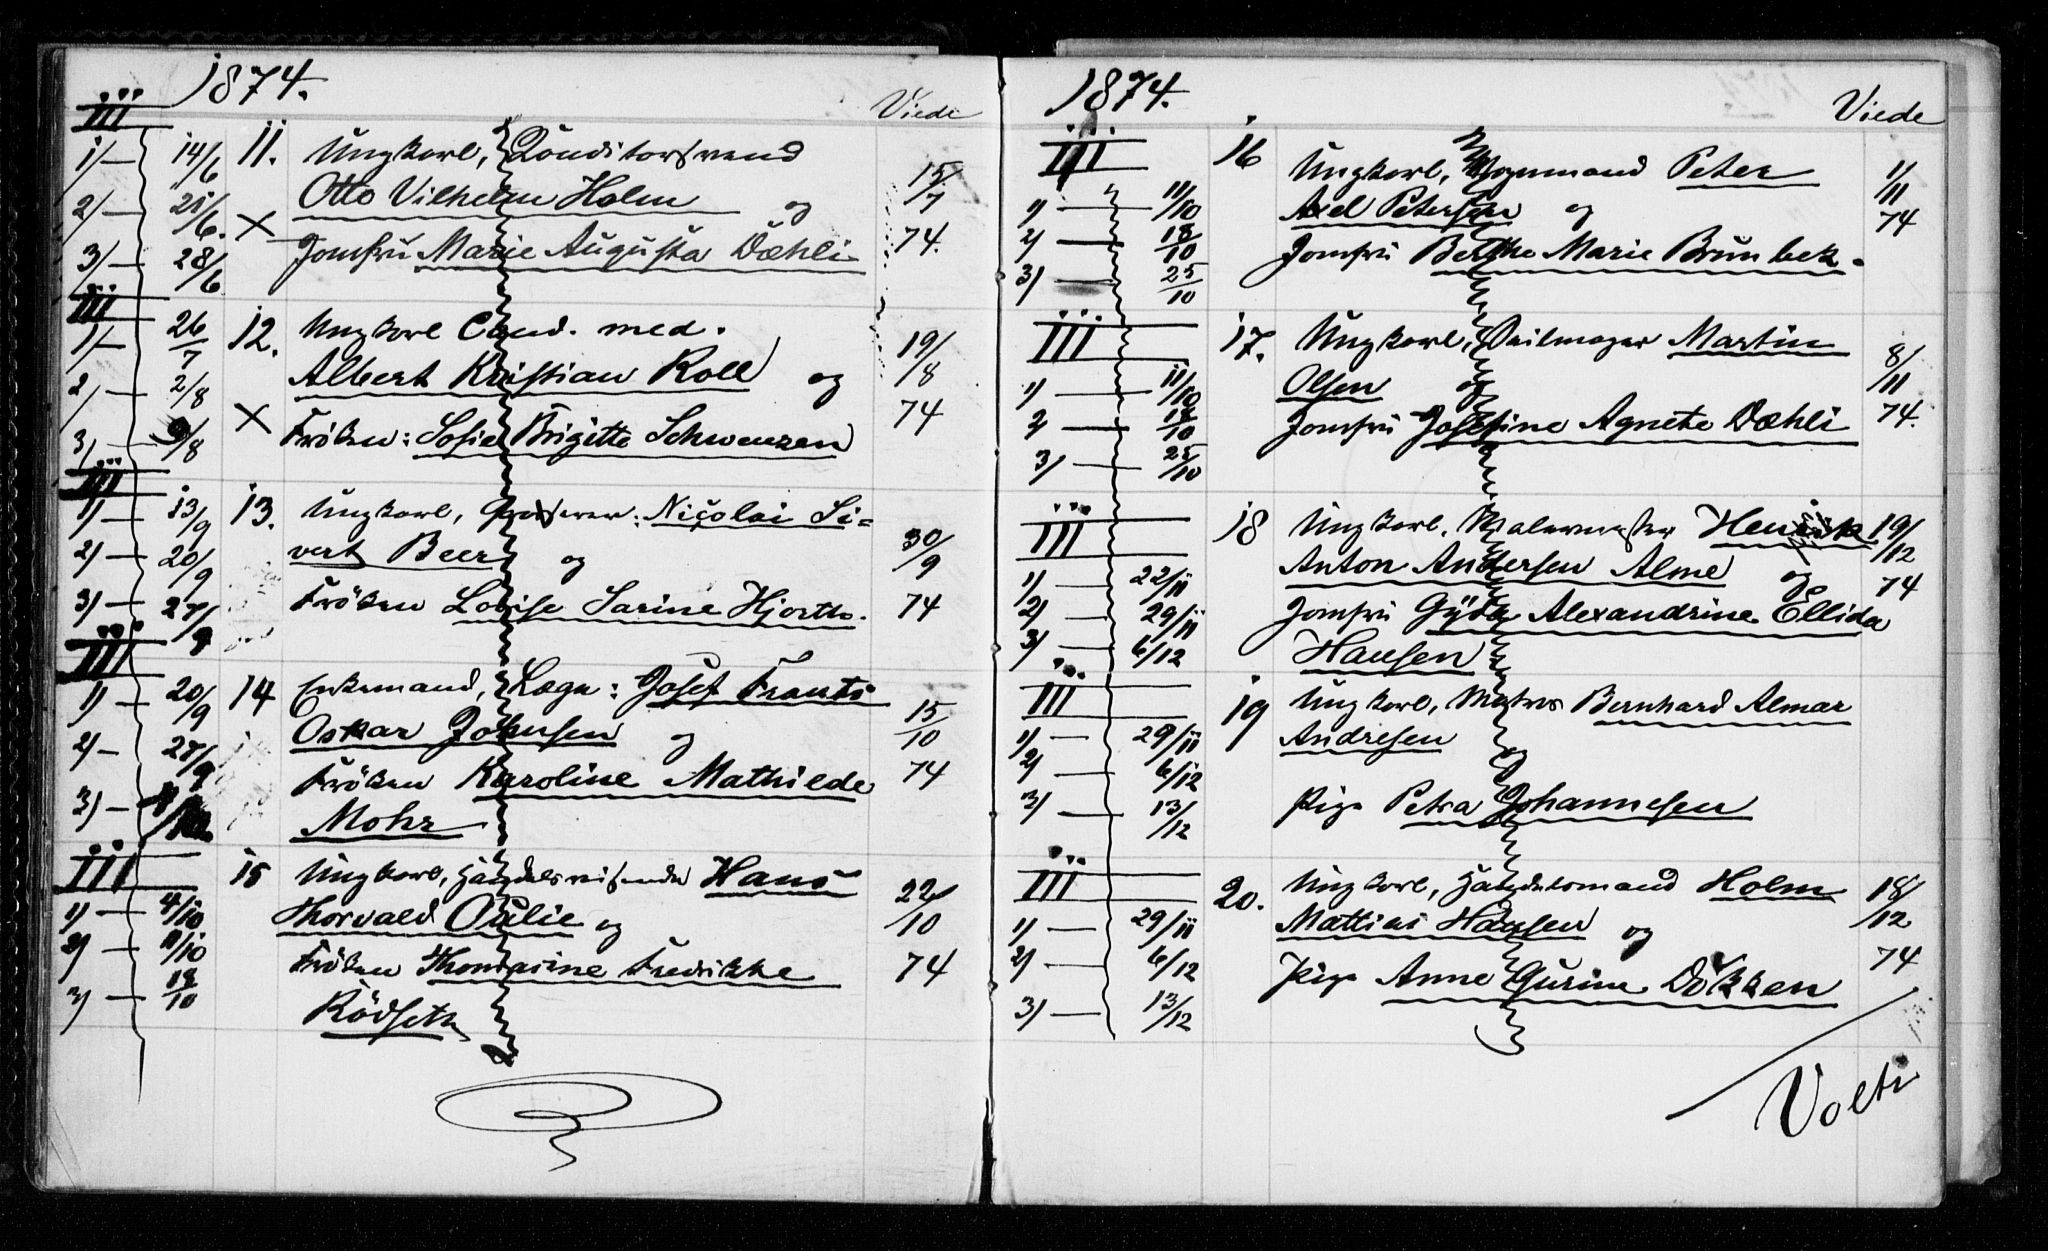 1874.
Viede
III
1/— 14/6 11. Ungkarl, Konditorsvend
Otto Vilhelm Holm og 15/7
2/— 21/6. ×
Jomfru Marie Augusta Dæhli 74.
3/— 28/6
III
1/— 26/7 12. Ungkarl Cand. med.
Albert Kristian Roll og 19/8
2/— 2/8
× Frøken: Sofie Brigitte Schwenzen 74
3/— 9/8
III
1/— 13/9 13. Ungkarl, Grosserer: Nicolai Si=
2/— 20/9 vert Beer og 30/9
3/— 27/9 Frøken Lovise Sarine Hjorth. 74
III
1/— 20/9 14 Enkemand, Læge: Josef Frants
Oskar Johnsen og 15/10
2/— 27/9 Frøken Karoline Mathilde 74
3/— Mohr
III
15 Ungkarl, Handelsreisende Hans
1/— 4/10 Thorvald Oulie og 22/10
2/— 11/10 Frøken Thomasine Fredrikke 74
3/— 18/10 Rödseth
1874.
Viede
III
16 Ungkarl, Vognmand Peter 1/11
1/— 11/10 Axel Petersen og 74
2/— 18/10 Jomfru Berthe Marie Brunbek.
3/— 25/10
III
17. Ungkarl, Seilmager Martin 8/11
1/— 11/10 Olsen og
2/— 18/10 Jomfru Josefine Agnete Dæhli 74.
3/— 25/10
III
18 Ungkarl, Malermester Henrik 19/12
1/— 22/11 Anton Andersen Alme og 74
2/— 29/11 Jomfru Gyda Alexandrine Ellida
3/— 6/12 Hansen
III
19 Ungkarl, Matros Bernhard Almar
1/— 29/11 Andresen og
2/— 6/12
3/— 13/12 Pige Petra Johannesen
III
20. Ungkarl, Handelsmand Holm 18/12
1/— 29/11 Mattias Hansen og
2/— 6/12 Pige Anne Gurine Dokken 74
3/— 13/12
Volti